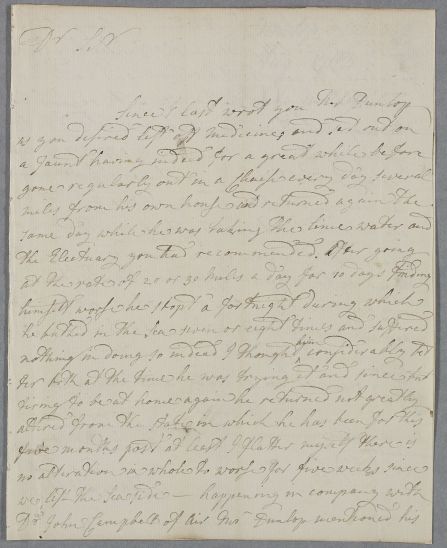 Dr Sir
Since I last wrot you Mr Dunlop
as you desired left off medicines and set out on
a jaunt having indeed for a great while before
gone regularly out in a chaise every day several
miles from his own house and returned again the
same day while he was taking the lime water and
the Electuary you had recommended. After going
at the rate of 20 or 30 miles a day for 10 days finding
himself worse he stop'd a fortnight during which
he bathed in the Sea seven or eight times and suffered
nothing in doing so indeed I thought him considerably bet
ter both at the time he was trying it and since but
tiring to be at home again he returned not greatly
altered from the state in which he has been for this
five months past at least I flatter myself there is
no alteration on whole to worse for five weeks since
we left the Sea side – happening in company with
Dr John Campbell of Air Mr Dunlop mentioned his